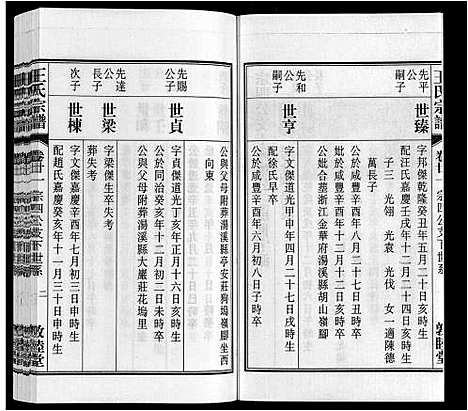 王氏宗譜
卷廿一
宗四公支下世系
敦睦堂
先平公嗣子
世臻
字邦傑乾隆癸丑年五月二十日亥時生
配汪氏嘉慶壬戌年十二月二十四日亥時生
子三 光翎 光袁 光伐 女一適陳德
萬長子
公於咸豐辛酉年八月二十七日丑時卒
妣於咸豐辛酉年十二月十二日亥時卒
公妣合塟浙江金華府湯溪縣胡山嶺脚
先和公嗣子
世亨
字文傑道光甲申年四月二十七日戌時生
配徐氏早卒
公於咸豐辛酉年六月初八日子時卒
公與父母附葬湯溪縣亭安莊狗塢嶺脚坐西
向東
先賜公子
世貞
字貞傑道光丁亥年正月十六日亥時生
公於同治癸亥年十二月初二日未時卒
公與父母附葬湯溪縣大巖莊花塢里
先達公長子
世梁
字梁傑生卒失考
葬失考
次子
世棟
字文傑嘉慶辛酉年七月初三日申時生
配趙氏嘉慶癸亥年十一月三十日申時生
王氏宗譜
卷廿一
宗四公支下世系
二
敦睦堂